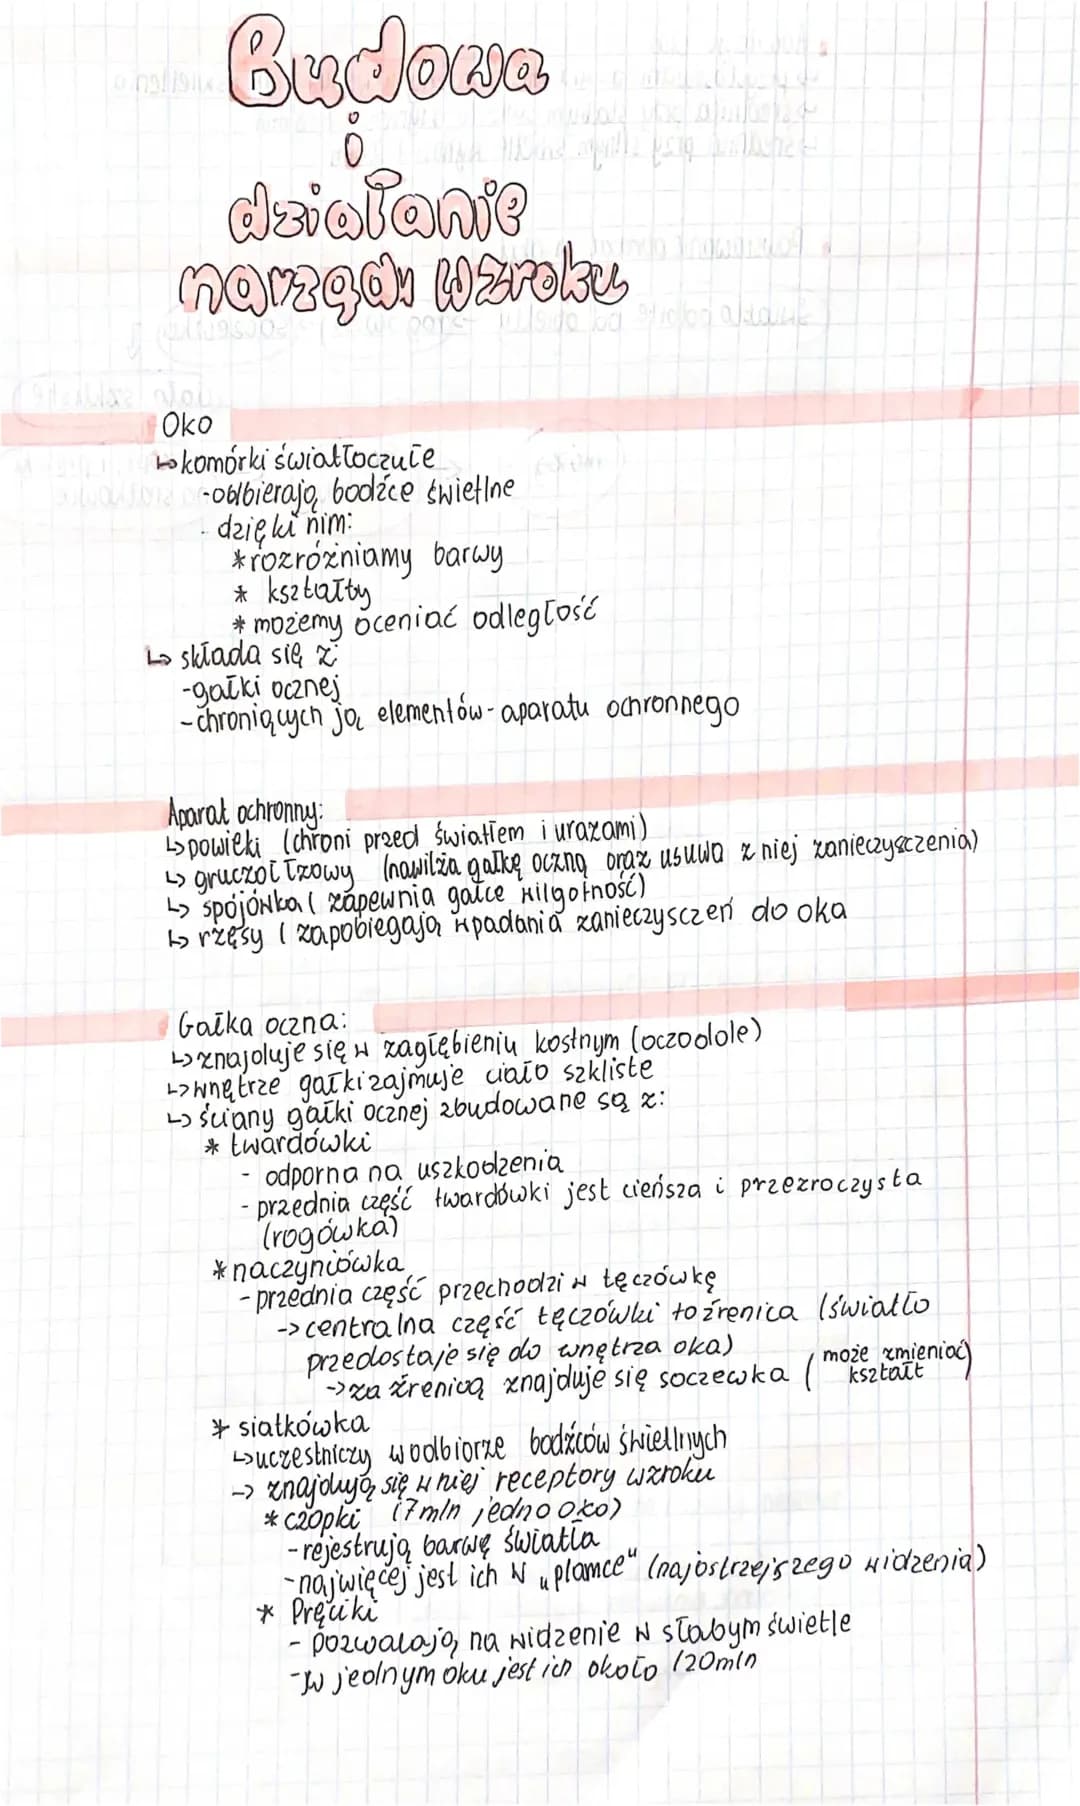 Budowa
i
działanie
narządu wzroku
Oko
↳ komórki światłoczułe
- odbierają bodźce świetlne
- dzięki nim:
* rozróżniamy barwy
* kształty
* możemy oceniać odległość
↳ składa się z:
- gałki ocznej
- chroniących ją elementów - aparatu ochronnego
Aparat ochronny:
↳ powieki (chroni przed światłem i urazami)
↳ gruczoł łzowy (nawilża gałkę oczną oraz usuwa z niej zanieczysczenia)
↳ spojówka ( zapewnia gałce wilgotność)
↳ rzęsy ( zapobiegają wpadania zanieczysczeń do oka
Gałka oczna:
↳ znajduje się w zagłębieniu kostnym (oczodole)
↳ wnętrze gałki zajmuje ciało szkliste
↳ ściany gałki ocznej zbudowane są z:
* twardówki
- odporna na uszkodzenia
- przednia część twardówki jest cieńsza i przezroczysta
(rogówka)
* naczyniówka
- przednia część przechodzi w tęczówkę
-> centralna część tęczówki to źrenica (światło
przedostaje się do wnętrza oka)
-> za źrenicą znajduje się soczewka ( może zmieniać kształt )
* siatkówka
↳ uczestniczy w odbiorze bodźców świetlnych
-> znajdują się w niej receptory wzroku
* czopki (7mln jedno oko)
- rejestrują barwę światła
- najwięcej jest ich w „plamce" (najostrzejszego widzenia)
* Pręciki
- pozwalają na widzenie w słabym świetle
- w jednym oku jest ich około 120mln